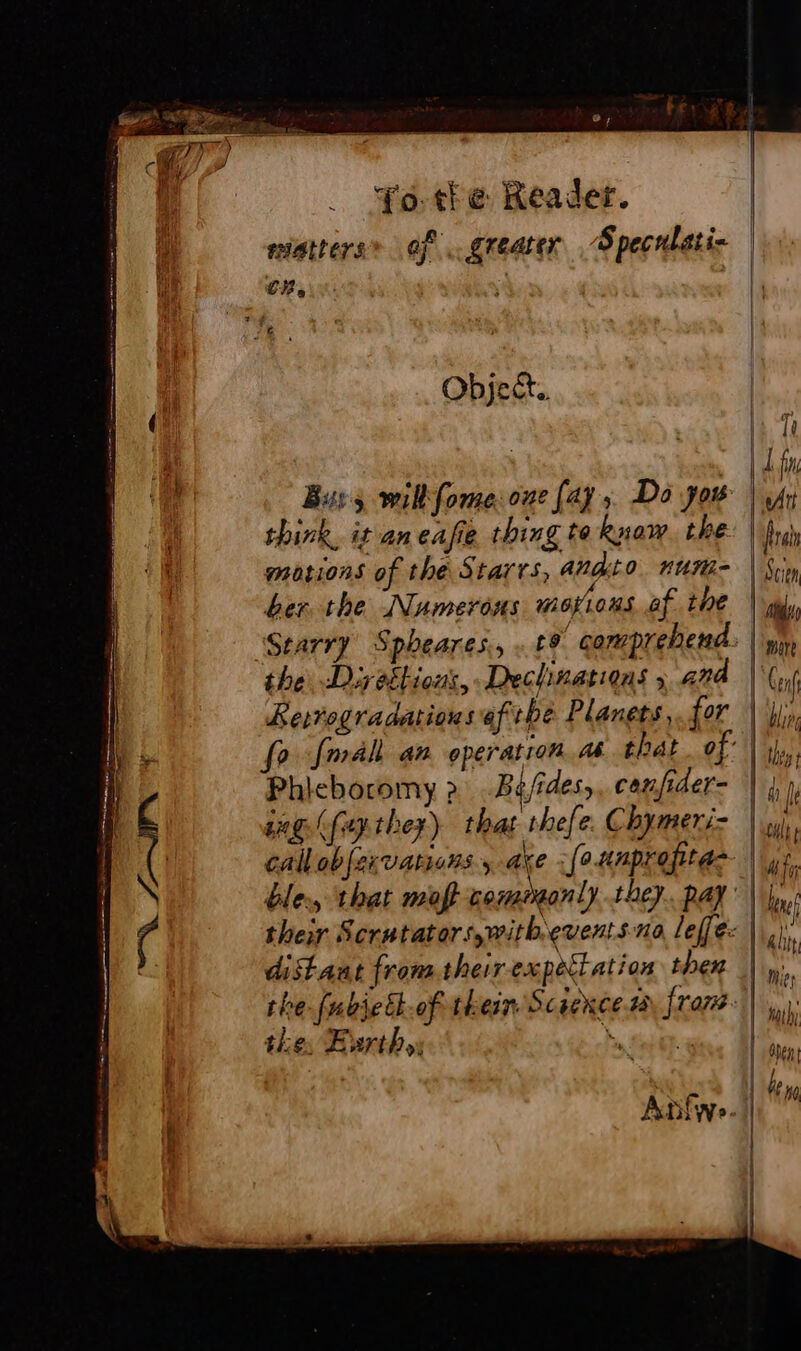 To the Reader.
matters of greater Speculati-
on.
Object.
But, will ſome one ſay, Do you
think it an eaſie thing to know the
motions of the Starrs, and to num-
ber the Numerous motions of the
Starry Spheares, to comprehend
the Directions, Declinations, and
Retrogradations of the Planets, for
ſo ſmall an operation as that of
Phlebotomy? Beſides, conſider-
ing (ſay they) that theſe Chymeri-
call obſervations, are ſo unprofita-
ble, that moſt commonly they pay
their Scrutators, with events no leſſe
diſtant from their expectation then
the ſubject of their Science is from
the Earth,
Anſwe-